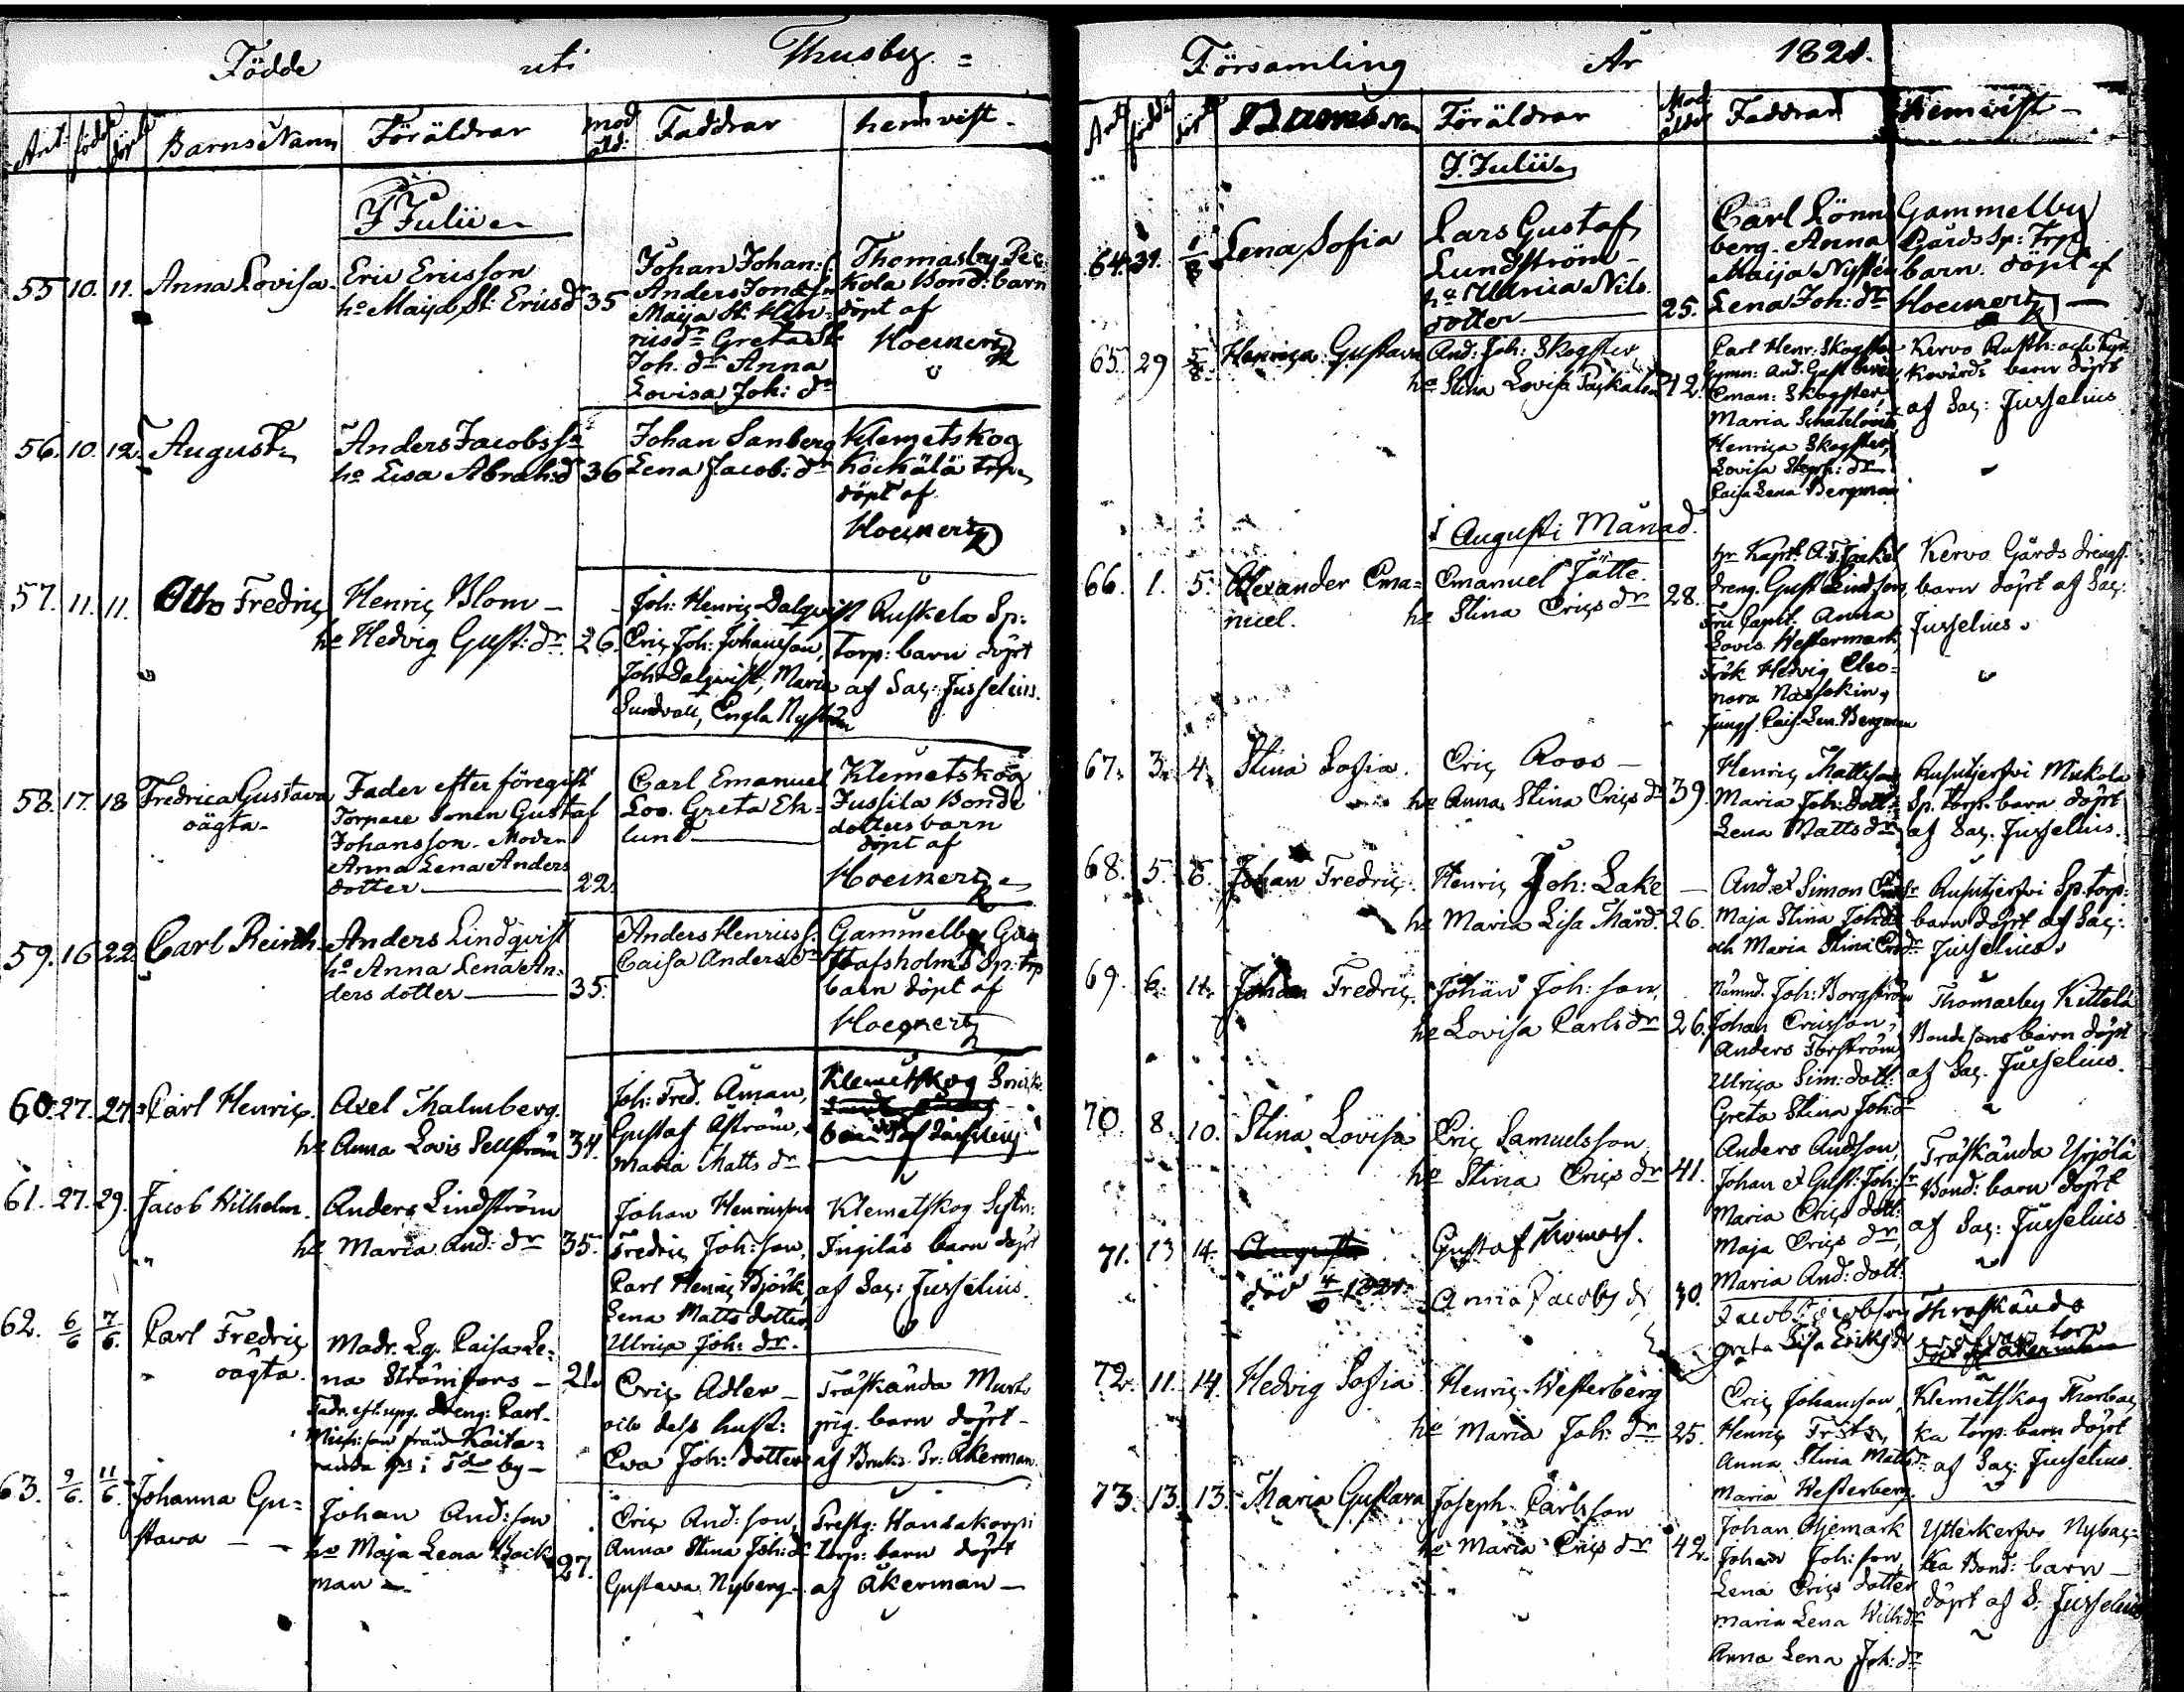 Födde uti Thusby =
Ant: född döpt Barns Namn Föräldrar mod åld: Faddrar hemvist -
I Julii
55 10. 11. Anna Lovisa.
Eric Ericsson
ho Maija St: Ericsdr 35
Johan Johan:
Anders Jonasn
Maija St. Hen-
ricsdr Greta St
Joh. dr Anna
Lovisa Joh: dr
Thomasby Pec
kola Bond: barn
döpt af
Hoeckert
56. 10. 12. August
Anders Jacobssn
ho Lisa Abrah:dr 36
Johan Sanberg
Lena Jacob: dr
Klemetskog
Köckälä trp
döpt af
Hoeckert
57. 11. 11. Otto Fredric
Henric Blom -
he Hedvig Gust: dr 26.
Joh: Henric Dalqvist
Eric Joh: Johansson,
Joh: Dalqvist, Maria
Sundvall, Engla Nyström
Ruskela Sp:
torp: barn döpt
af Sac: Jusselius.
58. 17. 18 Fredrica Gustava
oägta -
Fader efter föregift
Torpare Sonen Gustaf
Johansson - Moder
Anna Lena Anders
dotter 22.
Carl Emanuel
Loo. Greta Ek=
lund
Klemetskog
Jussila Bonde
dotters barn
döpt af
Hoeckert
59. 16 22 Carl Reinh.
Anders Lindqvist
ho Anna Lena An:
ders dotter 35.
Anders Henricss.
Caisa Andersdr
Gammelby Gus
tafsholms Sp: trp
barn döpt af
Hoeckert
60. 27. 27. Carl Henric.
Axel Thalmberg.
he Anna Lovis Sellström 34.
Joh: Fred. Åman,
Gustaf Åström,
Maria Matts dr
Klemetskog
61. 27. 29. Jacob Wilhelm.
Anders Lindström
he Maria And: dr 35.
Johan Henricsson
Fredric Joh: son,
Carl Henric Björk,
Lena Matts dotter,
Ulrica Joh: dr.
Klemetskog
barn döpt
af Sac: Jusselius.
62. 6/6 7/6. Carl Fredric
oägta.
Modr. Lg. Caisa Le-
na Strömfors - 21.
Fadr. eft. upg. dreng: Carl
i Tdr by -
Eric Adler -
och dess hust:
Eva Joh: dotter
Träskända Murk.
pig. barn döpt
af Bruks Pr: Åkerman.
63. 9/6. 11/6. Johanna Gu=
stava - -
Johan And: son
ho Maja Lena Back
man - 27.
Eric And: son
Anna Stina Joh: dr
Gustava Nyberg -
Prestg: Handakorpi
torp: barn döpt
af Åkerman -
Församling År 1821.
Ant född döpt Barns Nam Föräldrar Mod ålder Faddrar Hemvist -
I. Julii
64. 31. 1/8 Lena Sofia
Lars Gustaf
Lundström -
ho Ulrica Nils
dotter 25.
Carl Lönn
berg. Anna
Maija Nysten
Lena Joh: dr
Gammelby
Gårds Sp: Trp
barn. döpt af
Hoeckert
65. 29 5/8. Henrica Gustava
And: Joh: Skogster
he Stina Lovisa Paskalen 42.
Carl Henr: Skogster
Eman: Skogster,
Maria
Henrica Skogster,
Lovisa Steph: dr
Caisa Lena Bergman
Kervo Rusth: och
barn döpt
af Sac: Jusselius
I Augusti Månad.
66. 1. 5. Alexander Ema=
nuel.
Emanuel Jätte.
he Stina Erics dr 28.
hr Kapt:
dreng. Gust Lindfors,
Fru Capt. Anna
Lovis. Westermark,
Frök Hedvig Eleo=
nora
Jungf. Cais. Len. Bergman
Kervo Gårds drengs
barn döpt af Sac:
Jusselius.
67. 3. 4. Stina Sofia.
Eric Roos -
he Anna Stina Erics dr 39.
Henric Mattsson
Maria Joh: dott:
Lena Matts dr
Rusutjerfvi Mickola
Sp. torp. barn döpt
af Sac. Jusselius.
68. 5. 6. Johan Fredric.
Henric Joh: Lake -
he Maria Lisa Mård: 26.
And. et Simon
Maja Stina Joh: dr
och Maria Stina
Rusutjerfvi Sp. torp:
barn döpt af Sac:
Jusselius.
69. 6. 11. Johan Fredric.
Johan Joh: son,
he Lovisa Carls dr 26.
Nämnd. Joh: Borgström
Johan Ericsson,
Anders Forsström
Ulrica Sim: dott:
Greta Stina Joh: dr
Thomasby Kittelä
Bondesons barn döpt
af Sac. Jusselius.
70. 8. 10. Stina Lovisa
Eric Samuelsson
he Stina Erics dr 41.
Anders Andsson,
Johan et Gust: Joh: sr
Maria Erics dott:
Maja Erics dr,
Maria And: dott.
Träskända Yrjölä
Bond: barn döpt
af Sac: Jusselius
71. 13 14. August
död 4/9 1821.
Gustaf Thomass.
Anna Jacobs dr 30.
Jacob Jacobson
Greta Lisa Eriks dr
Thräskända
torp
döpt af Åkerman
72. 11. 14. Hedvig Sofia
Henric Westerberg
he Maria Joh: dr 25.
Eric Johansson,
Henric
Anna Stina Matts dr
Maria Westerberg.
Klemetskog Thorbac
ka torp: barn döpt
af Sac: Jusselius.
73. 13. 13. Maria Gustava
Joseph Carlsson
he Maria Erics dr 42.
Johan Öjemark
Johan Joh: son,
Lena Erics dotter
Maria Lena Wilh: dr
Anna Lena Joh: dr
Ytterkervo Nybac=
ka Bond: barn -
döpt af S: Jusselius